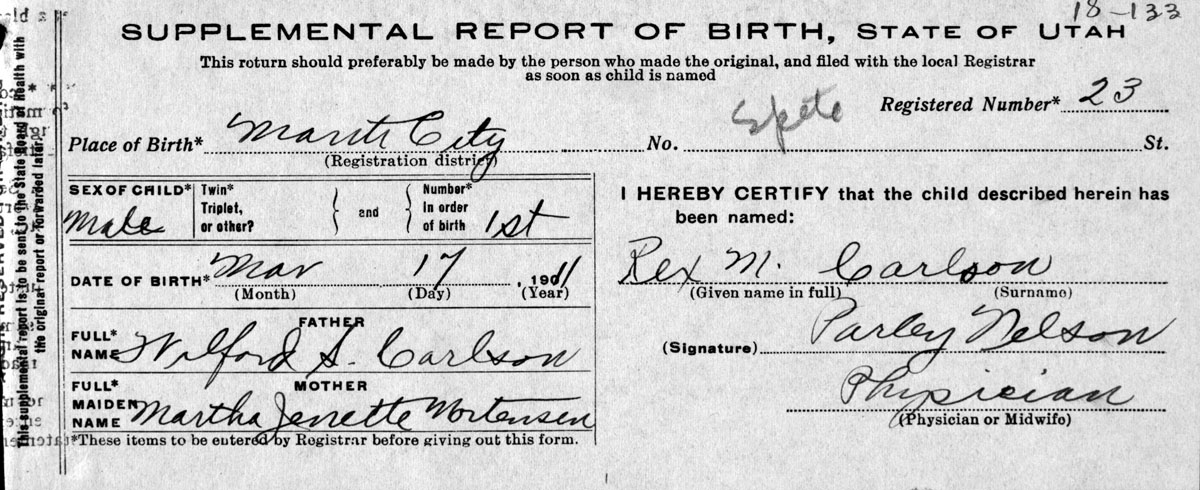 18-133
SUPPLEMENTAL REPORT OF BIRTH, STATE OF UTAH
This return should preferably be made by the person who made the original, and filed with the local Registrar
as soon as child is named
Registered Number* 23
Place of Birth* Manti City No. St.
(Registration district)
SEX OF CHILD* Male
Twin*
Triplet,
or other?
and
Number*
In order
of birth 1st
DATE OF BIRTH* Mar 17, 1911
(Month) (Day) (Year)
FATHER
FULL*
NAME Wilford S. Carlson
MOTHER
FULL*
MAIDEN
NAME Martha Jenette Mortensen
*These items to be entered by Registrar before giving out this form.
I HEREBY CERTIFY that the child described herein has
been named:
Rex M. Carlson
(Given name in full) (Surname)
(Signature) Parley Nelson
Physician
(Physician or Midwife)
This supplemental report is to be sent to the State Board of Health with
the original report or forwarded later.